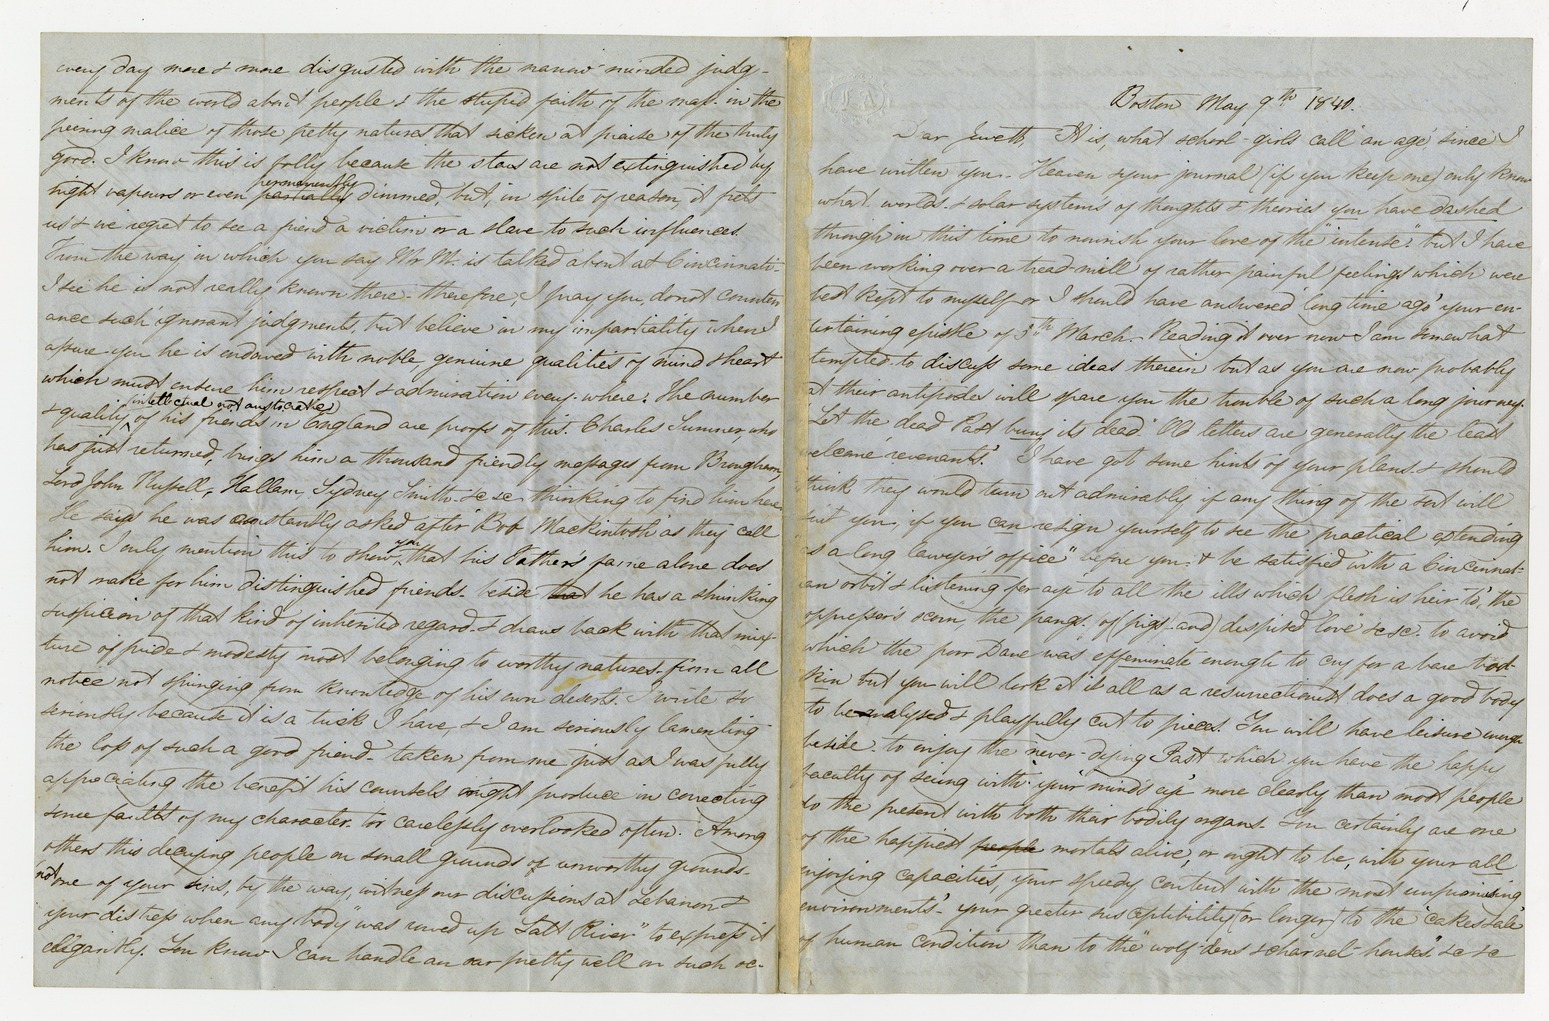 Boston May 9th 1840.
Dear Jewett It is, what school-girls call 'an age' since I
have written you. Heaven & your journal (if you keep one) only know
what worlds & solar systems of thoughts & theories you have dashed
through in this time to nourish your love of the "intense": but I have
been working over a tread-mill of rather painful feelings which were
best kept to myself or I should have answered 'long time ago' your en-
tertaining epistle of 3th March. Reading it over now I am somewhat
tempted to discuss some ideas therein but as you are now probably
at their antipodes will spare you the trouble of such a long journey.
Let the dead Past bury its dead. Old letters are generally the least
welcome 'revenants'. I have got some hints of your plans & should
think they would turn out admirably if any thing of the sort will
suit you, if you can resign yourself to see the practical extending
"as a long lawyer's office" before you & be satisfied with a Cincinnat-
ian orbit & listening for aye to all the ills which flesh is heir to, the
oppressor's scorn, the pangs of (pigs and) despised love &c &c. to avoid
which the poor Dane was effeminate enough to cry for a bare bod-
kin but you will look at it all as a resurrectionist does a good body
to be analysed & playfully cut to pieces. You will have leisure enough
beside to enjoy the never-dying Past which you have the happy
faculty of seeing with your 'mind's eye' more clearly than most people
do the present with both their bodily organs. You certainly are one
of the happiest people mortals alive, or ought to be, with your all
enjoying capacities, your speedy content with the most unpromising
'environments' - your greater susceptibility (or longer) to the 'cakes & ale'
of human condition than to the "wolf-dens & charnel-houses" &c &c
every day more & more disgusted with the narrow-minded judg-
ments of the world about people & the stupid faith of the mass in the
peering malice of those petty natures that sicken at praise of the truly
good. I know this is folly because the stars are not extinguished by
night vapours or even partially permanently dimmed, but, in spite of reason, it frets
us & we regret to see a friend a victim or a slave to such influences.
From the way in which you say Mr M. is talked about at Cincinnati-
I see he is not really known there - therefore, I pray you, do not counten
ance such ignorant judgments, but believe in my impartiality when I
assure you he is endowed with noble, genuine qualities of mind & heart
which must ensure him respect & admiration every-where. The number
& quality (intellectual not aristocratic) of his friends in England are proofs of this. Charles Sumner, who
has just returned, brings him a thousand friendly messages from Brougham,
Lord John Russell, Hallam, Sydney Smith &c &c thinking to find him here
He says he was constantly asked after 'Rob Mackintosh' as they call
him. I only mention this to show you that his Father's fame alone does
not make for him distinguished friends - beside that he has a shrinking
suspicion of that kind of inherited regard - & draws back with that mix-
ture of pride & modesty most belonging to worthy natures, from all
notice not springing from knowledge of his own deserts. I write so
seriously because it is a trick I have, & I am seriously lamenting
the loss of such a good friend - taken from me just as I was fully
appreciating the benefit his counsels might produce in correcting
some faults of my character too carelessly overlooked often. Among
others this decrying people on small grounds of unworthy grounds.
(not one of your sins, by the way, witness our discussions at Lebanon &
your distress when any body "was rowed up Salt River" to express it
elegantly. You know I can handle an oar pretty well on such oc-